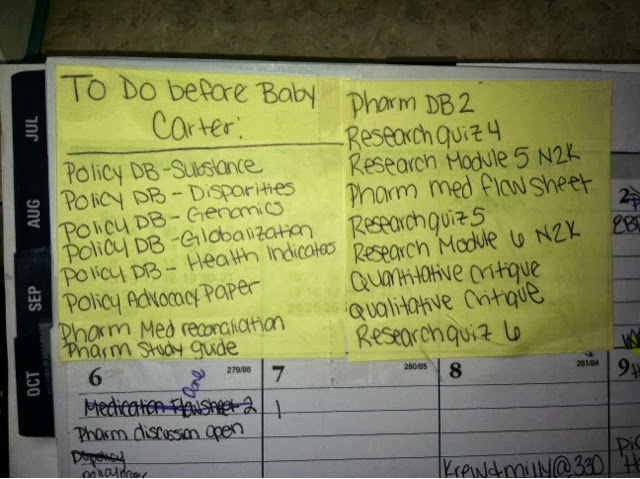 To Do before Baby
Carter:
Policy DB - Substance
Policy DB - Disparities
Policy DB - Genomics
Policy DB - Globalization
Policy DB - Health Indicates
Policy Advocacy Paper
Pharm Med reconciliation
Pharm Study guide
Pharm DB 2
Research quiz 4
Research Module 5 N2K
Pharm med flowsheet
Research quiz 5
Research Module 6 N2K
Quantitative Critique
Qualitative Critique
Research quiz 6
JUL
AUG
SEP
OCT
6
279/86
7
280/85
8
281/84
9
Done
Medication Flowsheet 2
Pharm discussion open
Krew+milly@330